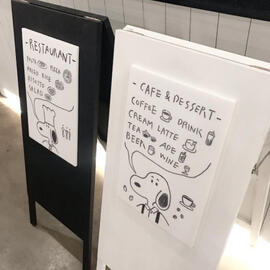 -RESTAURANT-
PASTA PIZZA
FRIED RICE
ASSORTED
SALAD
-CAFE & DESSERT-
COFFEE DRINK
CREAM LATTE
TEA ADE
BEER WINE